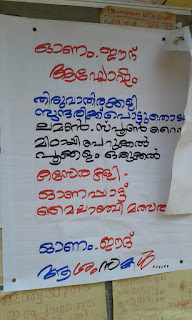 ഓണം.ഈദ്
ആഘോഷം
തിരുവാതിരക്കളി
സുന്ദരിക്ക്പൊട്ടുതൊട
ലമൺ.സ്പൂൺ റൈസ
മിഠായിപെറുക്കൽ
പൂക്കളം ഒരുക്കൽ
കസേരകളി.
ഓണപ്പാട്ട്
മൈലാഞ്ചി മത്സര
ഓണം.ഈദ്
ആശംസകൾ.....